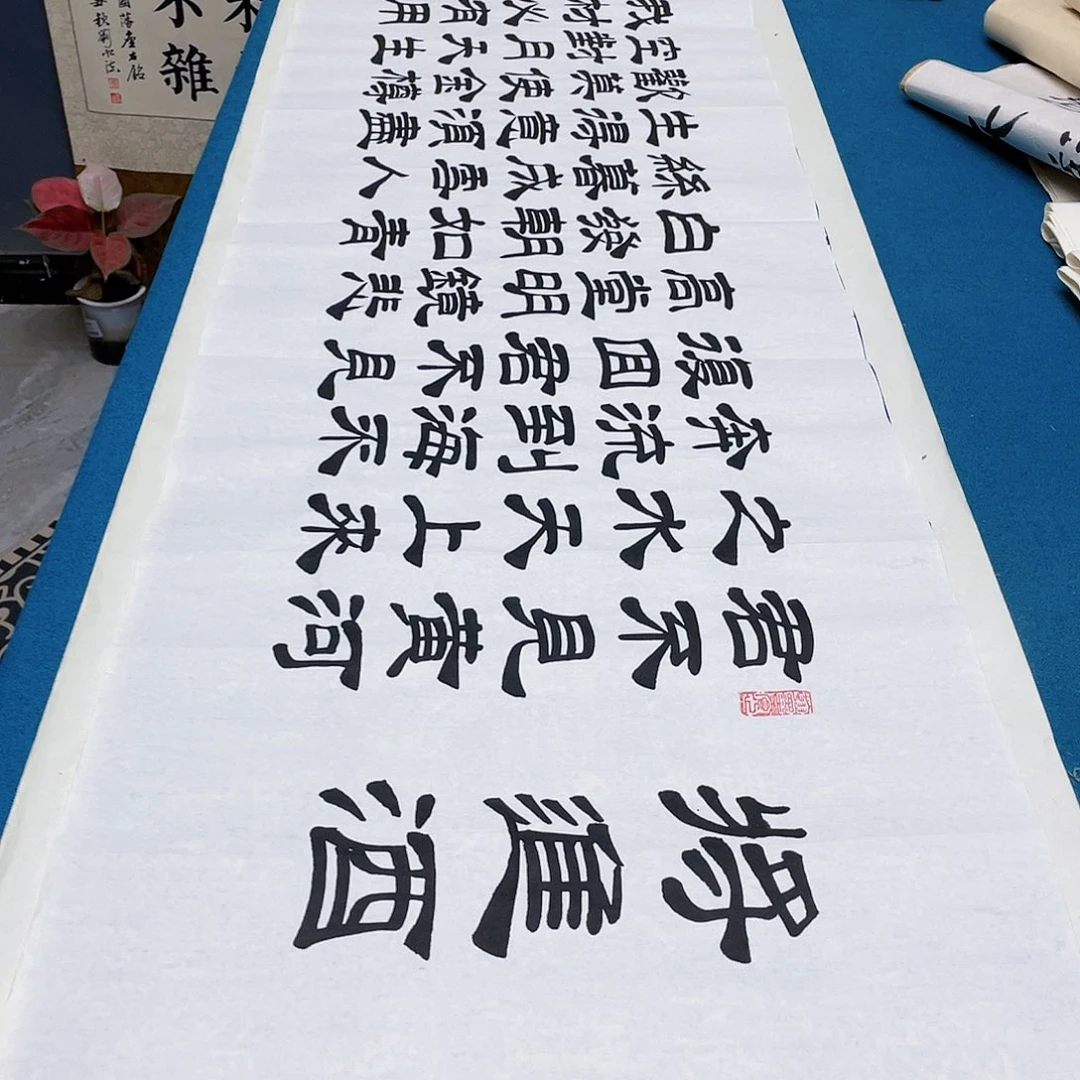 将進酒
君不見黄河
之水天上来
奔流到海不
復回君不見
高堂明鏡悲
白發朝如青
絲暮成雪人
生得意須盡
歡莫使金樽
空對月天生
我材必有用
雜